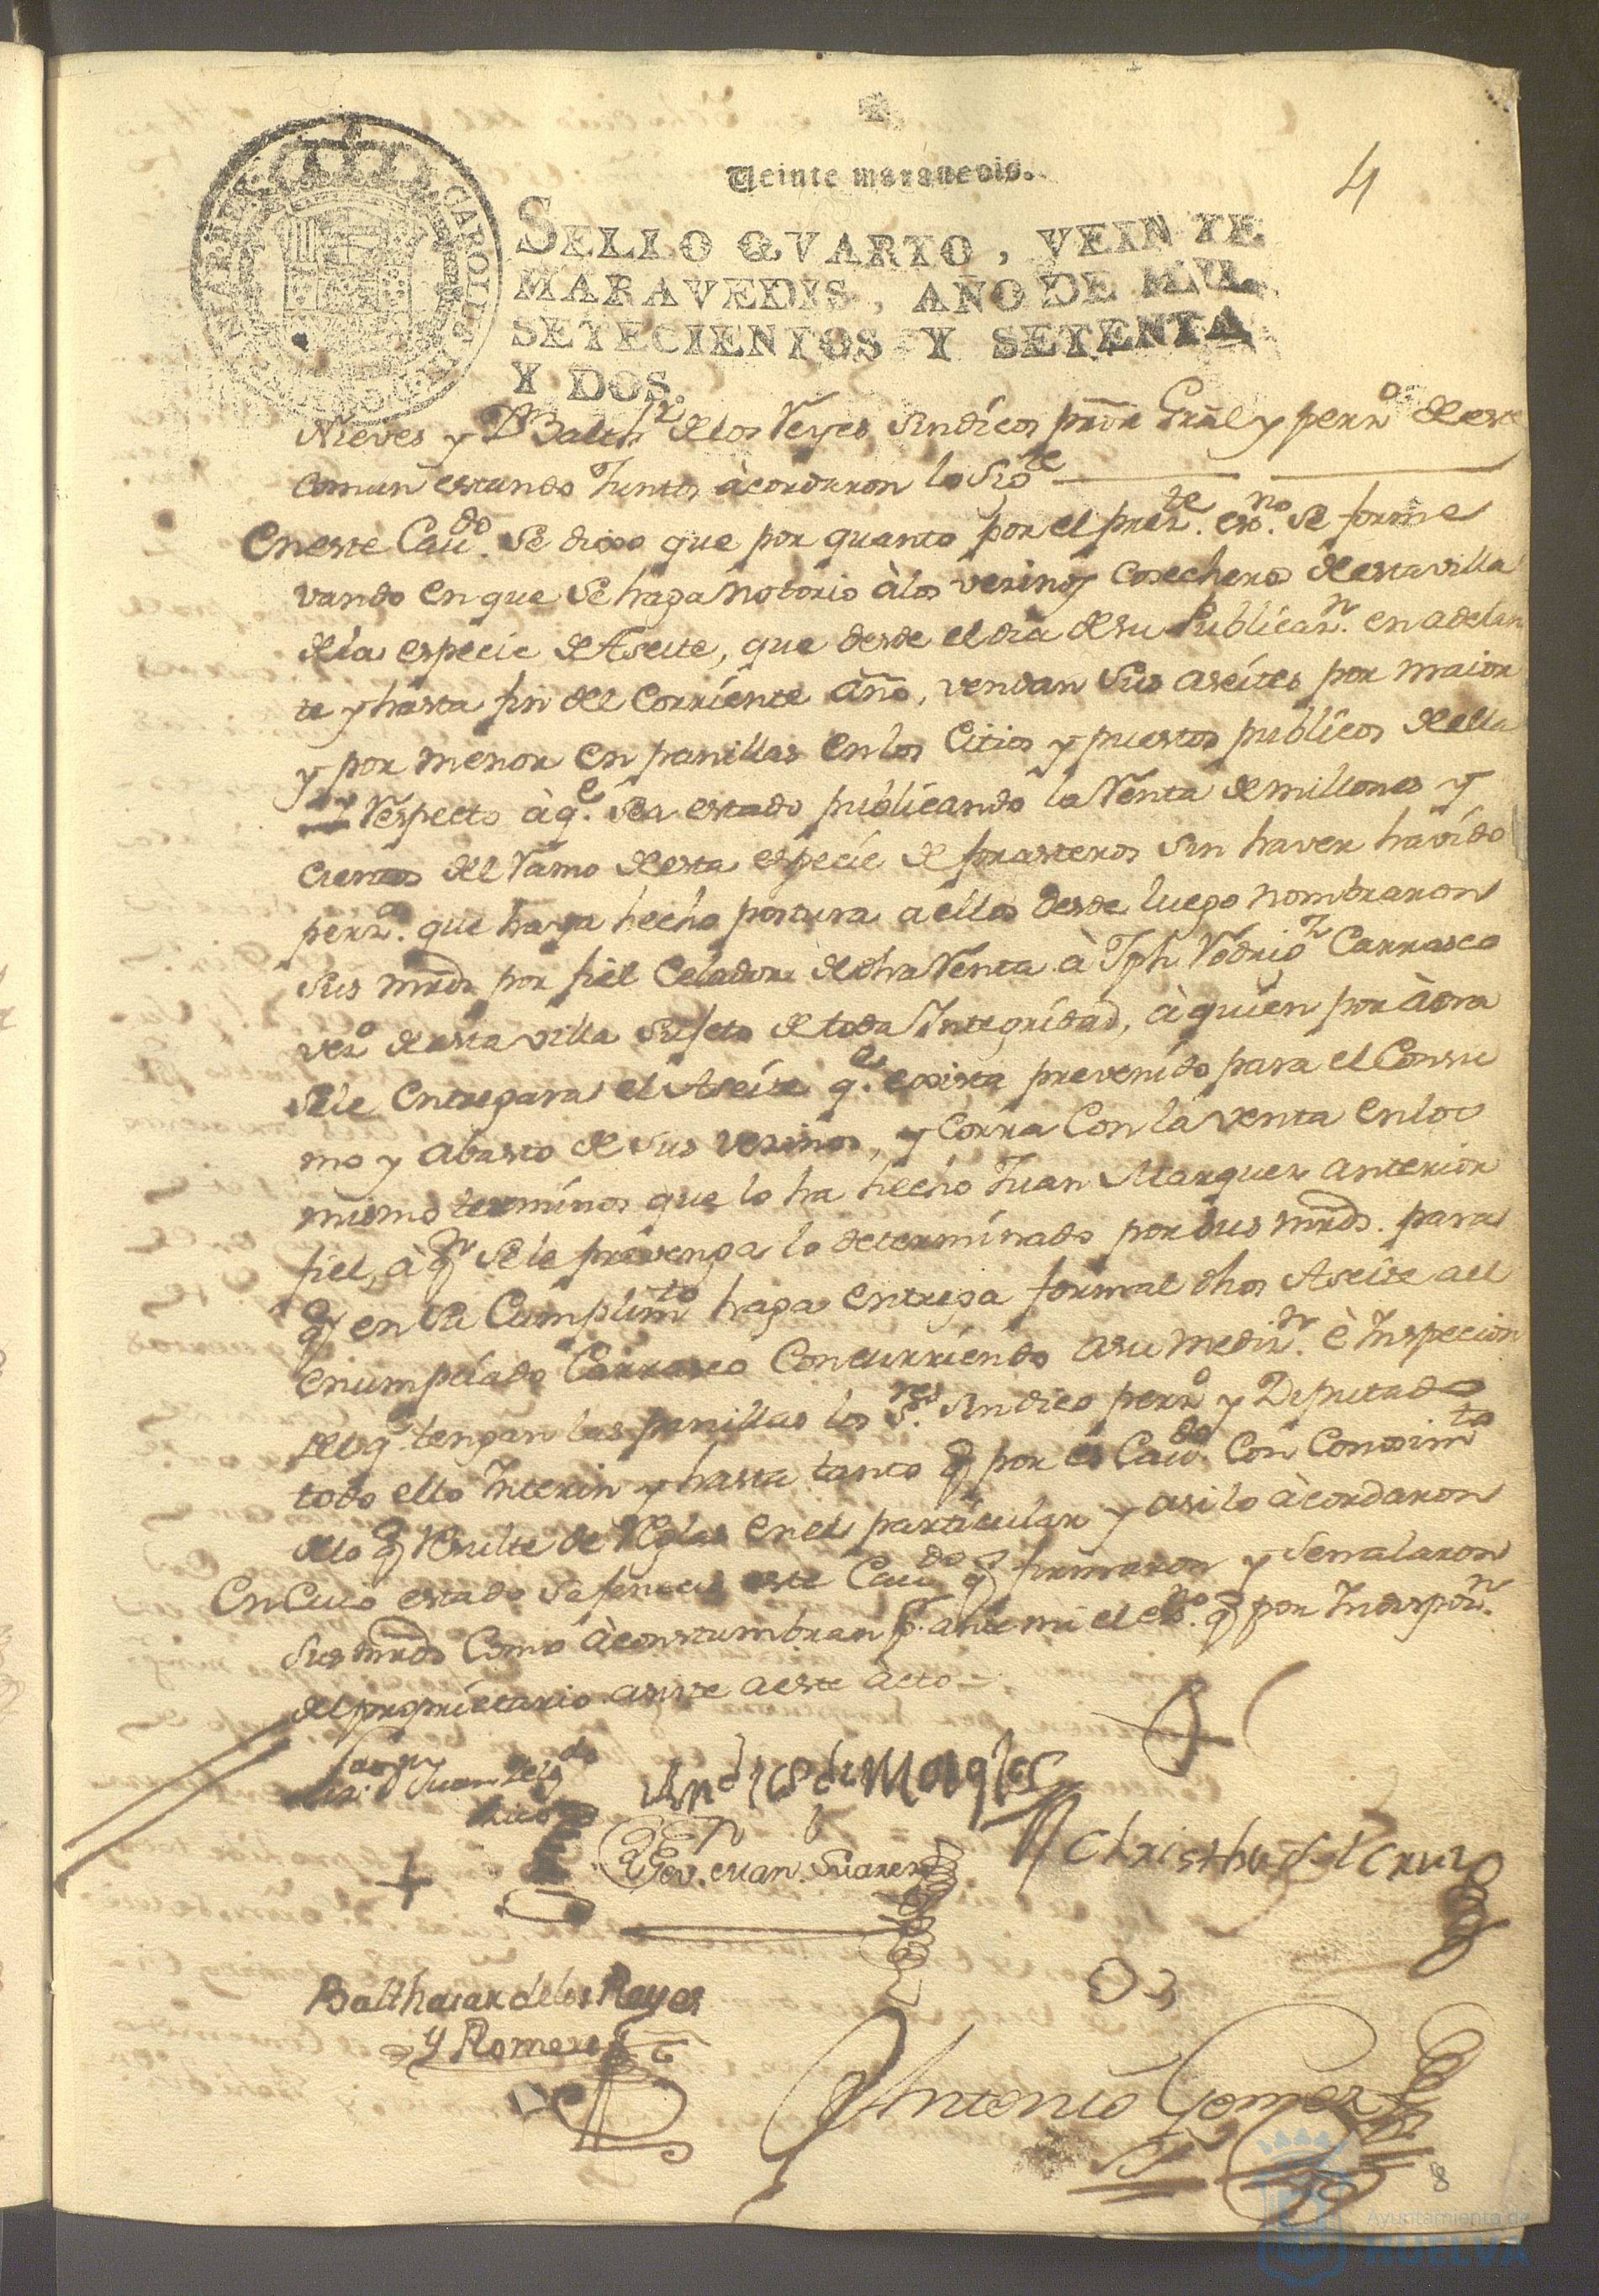 4
Veinte maravedis.
SELLO QVARTO, VEINTE
MARAVEDIS, AÑO DE MIL
SETECIENTOS Y SETENTA
Y DOS.
Nieves y Dn Balthr delos Reyes Sindicos pror Gral y persro de este
Comun estando Juntos àcordaron lo Sigte
En este Cavdo. Se dixo que por quanto por el preste. esno. Se forme
vando en que Se haga notorio àlos vezinos Cosecheros de esta villa
dela especie de Aseite, que desde el dia de su Publicazn. en adelan
te y hasta fin del Corriente año, vendan Sus aseites por maior
y por menor en panillas en los Citios y puestos publicos de ella
Respecto à qe. se a estado publicando la Renta de millones y
cientos del Ramo de esta especie de forasteros Sin haver havido
persa. que haya hecho postura a ellos desde luego nombraron
Sus mrds por fiel Celador de dha Renta à Jph Rodrigz Carrasco
vezo de esta villa Sujeto de toda Integridad, à quien por àora
Se le entregara el Aseite qe. exista prevenido para el Consu
mo y abasto de Sus vezinos, y Corra Con la venta en los
mismos terminos que lo ha hecho Juan Marquez anterior
fiel, à qn Se le prevenga lo determinado por Sus mrds. para
q en Su Cumplimto haga entrega formal dhos Aseite al
enumpciado Carrasco Concurriendo a su medizn. è Inspecion
delo q. tengan las panillas los Sres. Sindico persro y Deputados
todo ello Interin y hasta tanto q por es Cavdo. Con Conosimto
delo q Resulte de Reglas en el particular y asi lo àcordaron
En Cuio estado Se fenecio este Cavdo q firmaron y Señalaron
Sus mrds Como àcostumbran p. ante mi el esno. q por Indispon.
del proprietario asiste a este àcto
Juan Delgdo
Andres de
Juan. Suarez
Christhv del Cruz
Balthasar delos Reyes
y Romero
Antonio Gomez
8
Ayuntamiento de
HUELVA